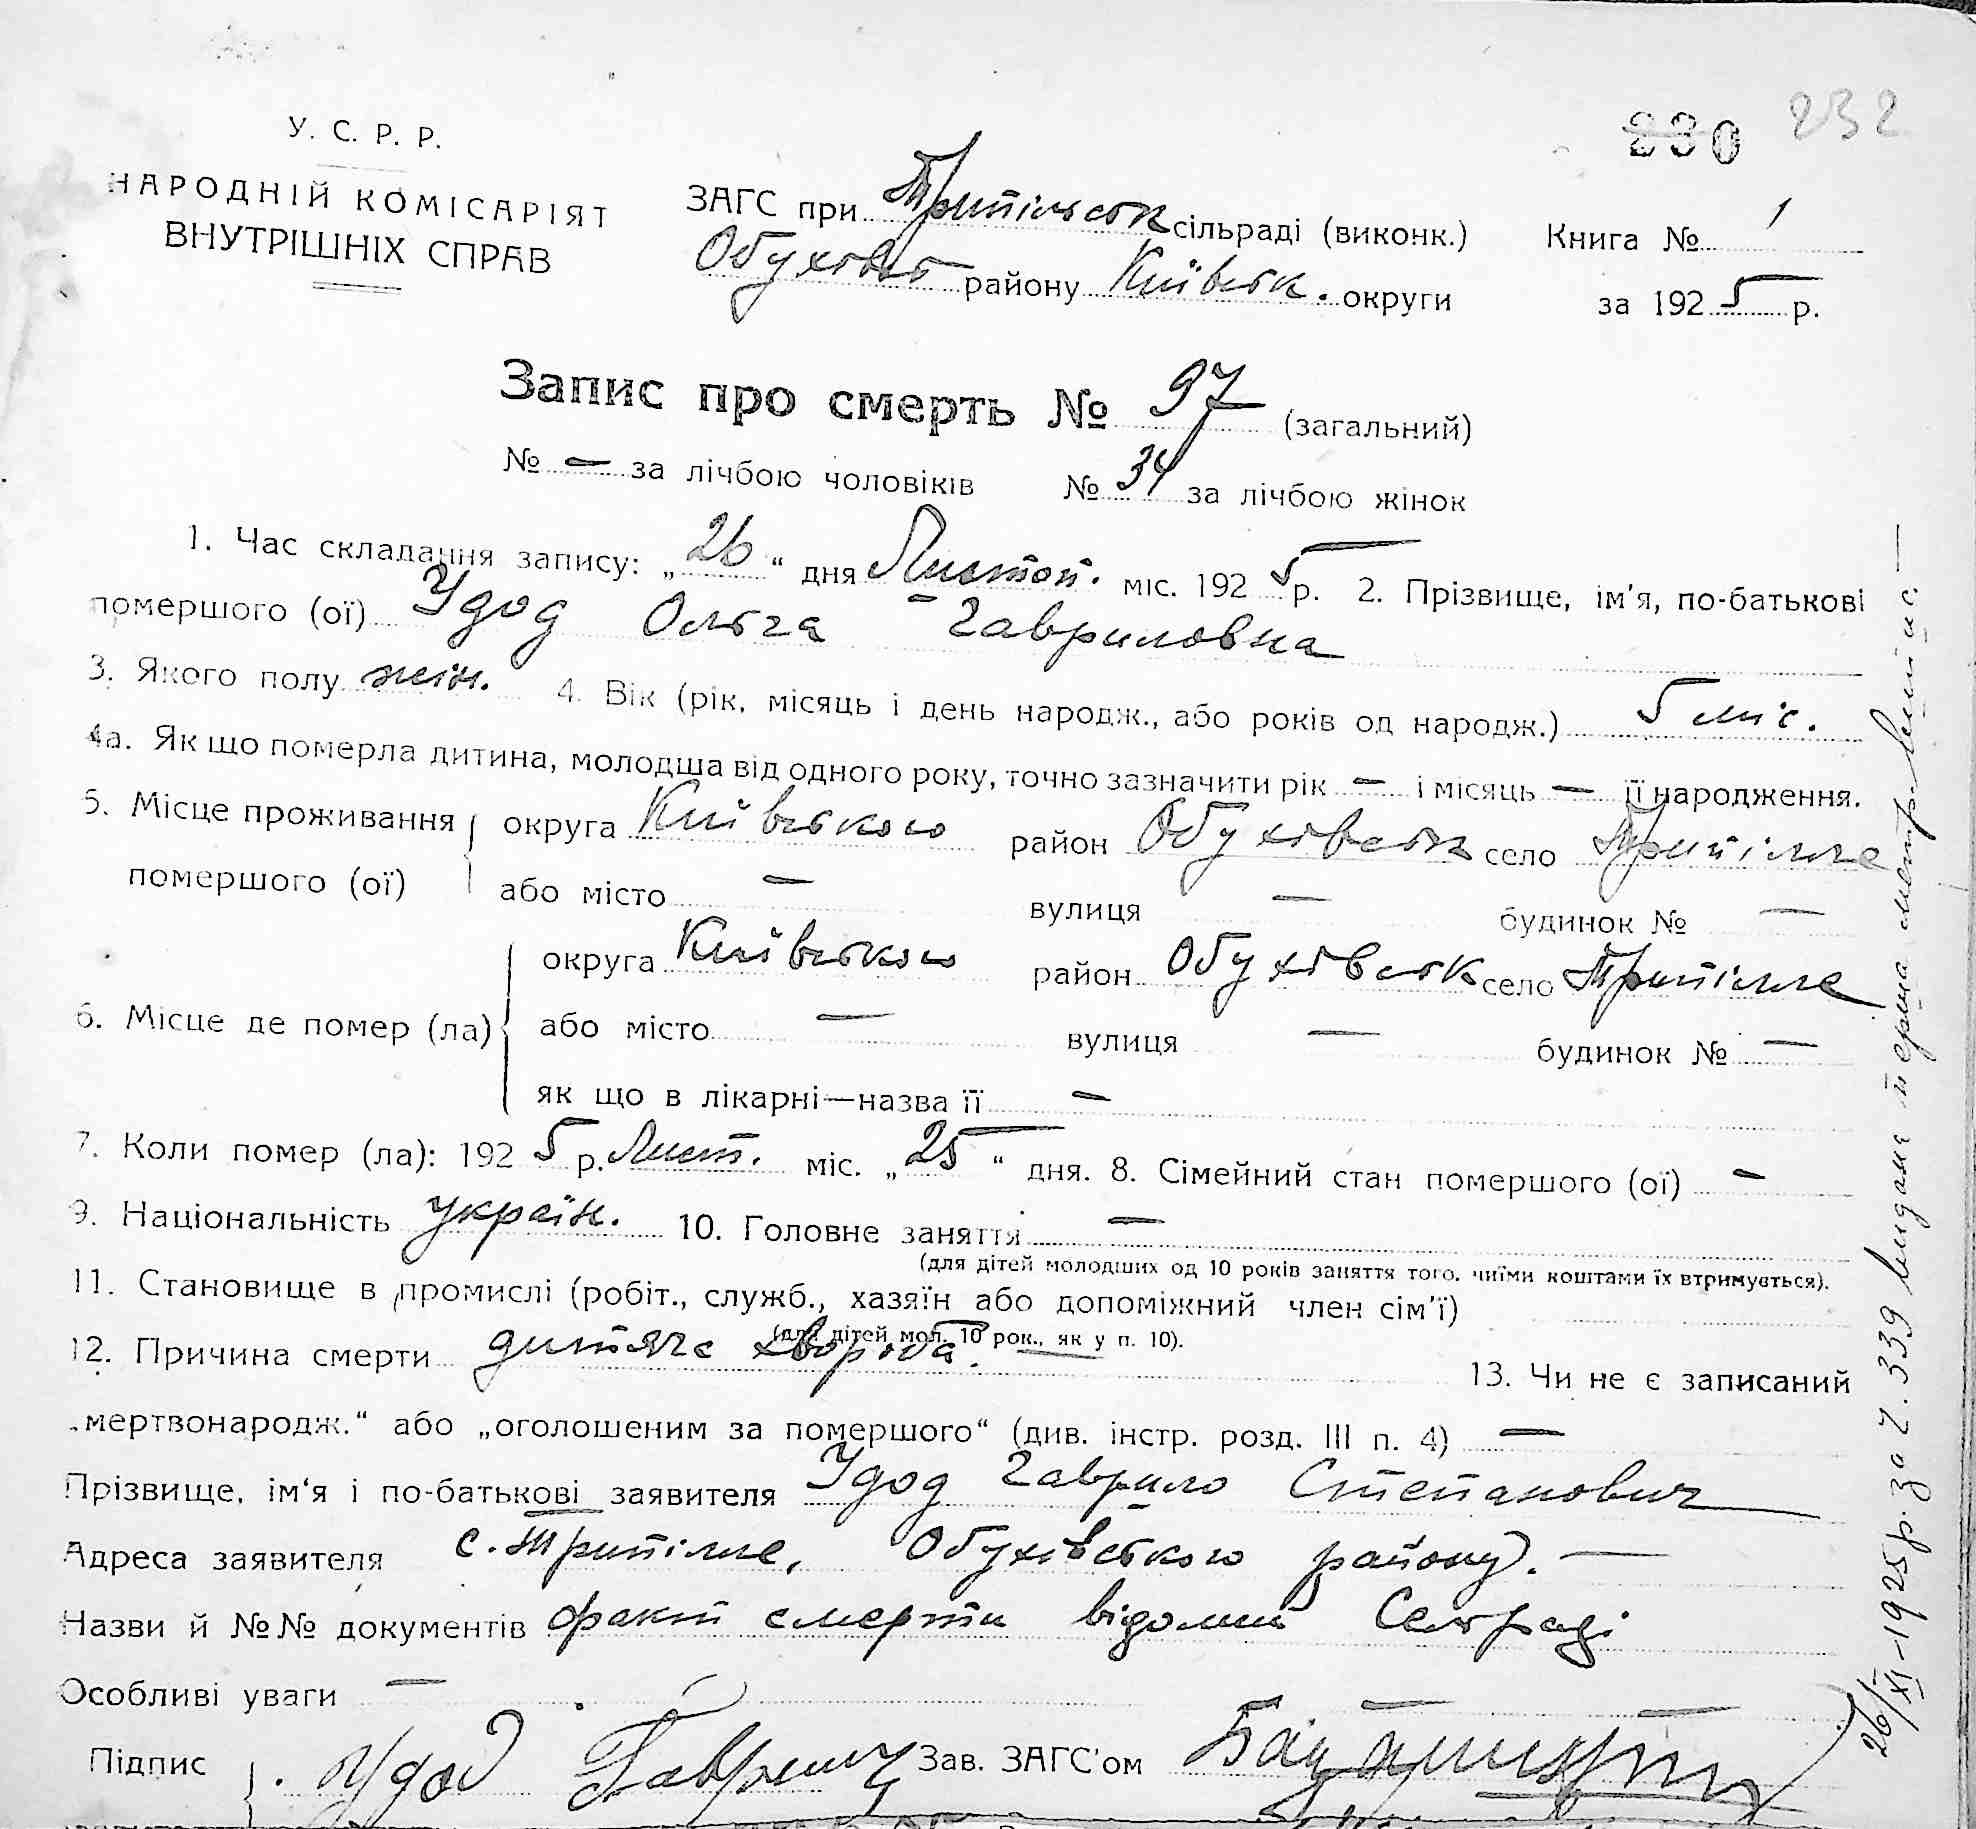 230 232
У. С. Р. Р.
НАРОДНІЙ КОМІСАРІЯТ
ВНУТРІШНІХ СПРАВ
ЗАГС при Трипільськ сільраді (виконк.)
Обухівсь району Київськ. округи
Книга № 1
за 1925 р.
Запис про смерть № 97 (загальний)
№ — за лічбою чоловіків № 34 за лічбою жінок
1. Час складання запису: „26“ дня Листоп. міс. 1925 р. 2. Прізвище, ім'я, по-батькові
помершого (ої) Удод Ольга Гавриловна
3. Якого полу жін. 4. Вік (рік, місяць і день народж., або років од народж.) 5 міс.
4а. Як що померла дитина, молодша від одного року, точно зазначити рік — і місяць — її народження.
5. Місце проживання округа Київського район Обухівськ село Трипілле
помершого (ої) або місто — вулиця — будинок № —
округа Київського район Обухівськ село Трипілле
6. Місце де помер (ла) або місто — вулиця — будинок № —
як що в лікарні—назва її —
7. Коли помер (ла): 1925 р. Лист. міс. „25“ дня. 8. Сімейний стан помершого (ої) —
9. Національність україн. 10. Головне заняття —
(для дітей молодших од 10 років заняття того, чиїми коштами їх втримується).
11. Становище в промислі (робіт., служб., хазяїн або допоміжний член сім'ї)
(для дітей мол. 10 рок., як у п. 10).
12. Причина смерти дитяча хвороба. — 13. Чи не є записаний
„мертвонародж.“ або „оголошеним за помершого“ (див. інстр. розд. III п. 4) —
Прізвище, ім'я і по-батькові заявителя Удод Гаврило Степанович
Адреса заявителя с. Трипілле, Обухівського району. —
Назви й №№ документів факт смерти відомий Сельраді
Особливі уваги —
Підпис Удод Гаврилу Зав. ЗАГС'ом
26/XI-1925 р. за ч. 339 видане перша метр. випис. —